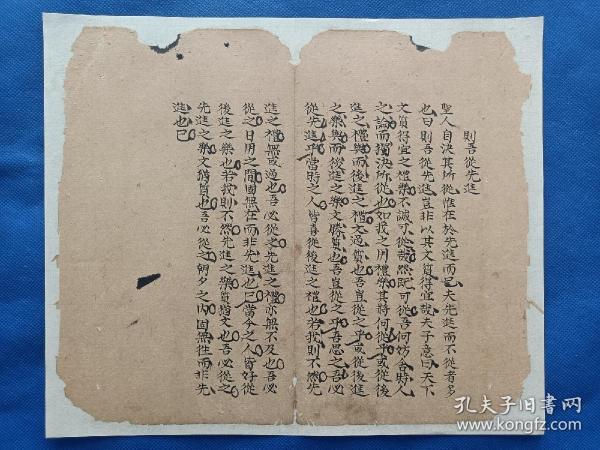 則吾從先進
聖人自決其所從惟在於先進而已夫先進而不從者多
也曰則吾從先進豈非以其文質得宜哉夫子意曰天下
文質得宜之禮樂不誠可從哉然旣可從吾何妨舍時人
之論而獨決所從也如我之用禮樂其將何從乎或從後
進之禮與而後進之禮文過質也吾豈從之乎或從後進
之樂與而後進之樂文勝質也吾豈從之乎吾思之吾必
從先進乎當時之人皆喜從後進之禮也若我則不然先
進之禮無或過也吾必從之先進之禮亦無不及也吾必
從之日用之間固無在而非先進也已當今之人皆好從
後進之樂也若我則不然先進之樂質猶文也吾必從之
先進之樂文猶質也吾必從之朝夕之內固無往而非先
進也已
孔夫子旧书网
www.kongfz.com